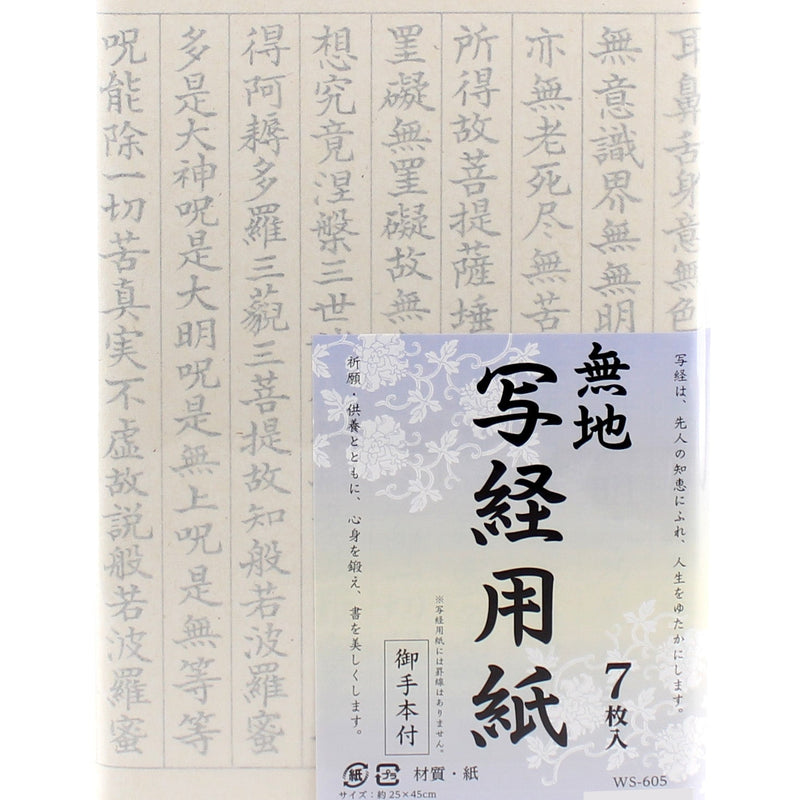 耳鼻舌身意無色
無意識界無無明
亦無老死尽無苦
所得故菩提薩埵
罣礙無罣礙故無
想究竟涅槃三世
得阿耨多羅三藐三菩提故知般若波羅蜜
多是大神呪是大明呪是無上呪是無等等
呪能除一切苦真実不虚故説般若波羅蜜
写経は、先人の知恵にふれ、人生をゆたかにします。
無地
写経用紙
7枚入
※写経用紙には罫線はありません。
御手本付
祈願・供養とともに、心身を鍛え、書を美しくします。
紙 プラ 材質・紙
サイズ：約25×45cm
WS-605